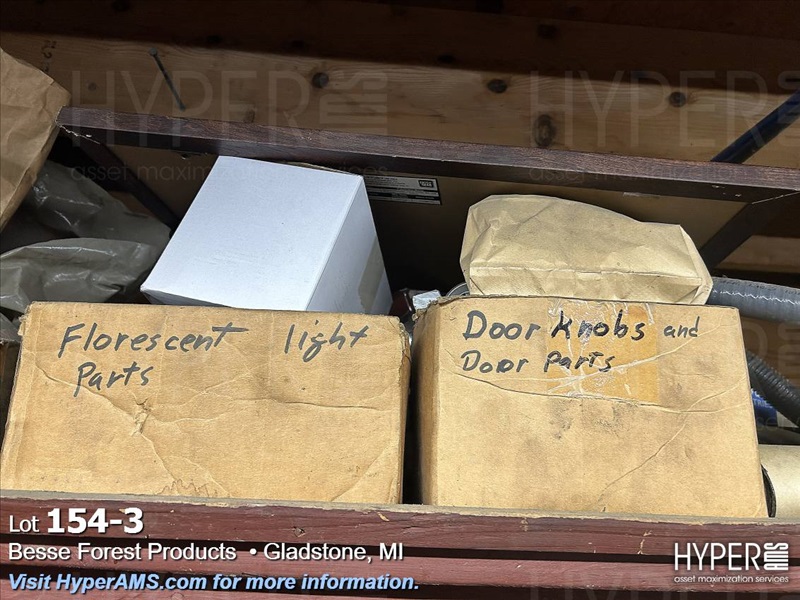 HYPERAMS
asset maximization services
HYPERAMS
asset maximization services
Florescent light
Parts
Door Knobs and
Door Parts
Lot 154-3
Besse Forest Products • Gladstone, MI
Visit HyperAMS.com for more information.
HYPERAMS
asset maximization services